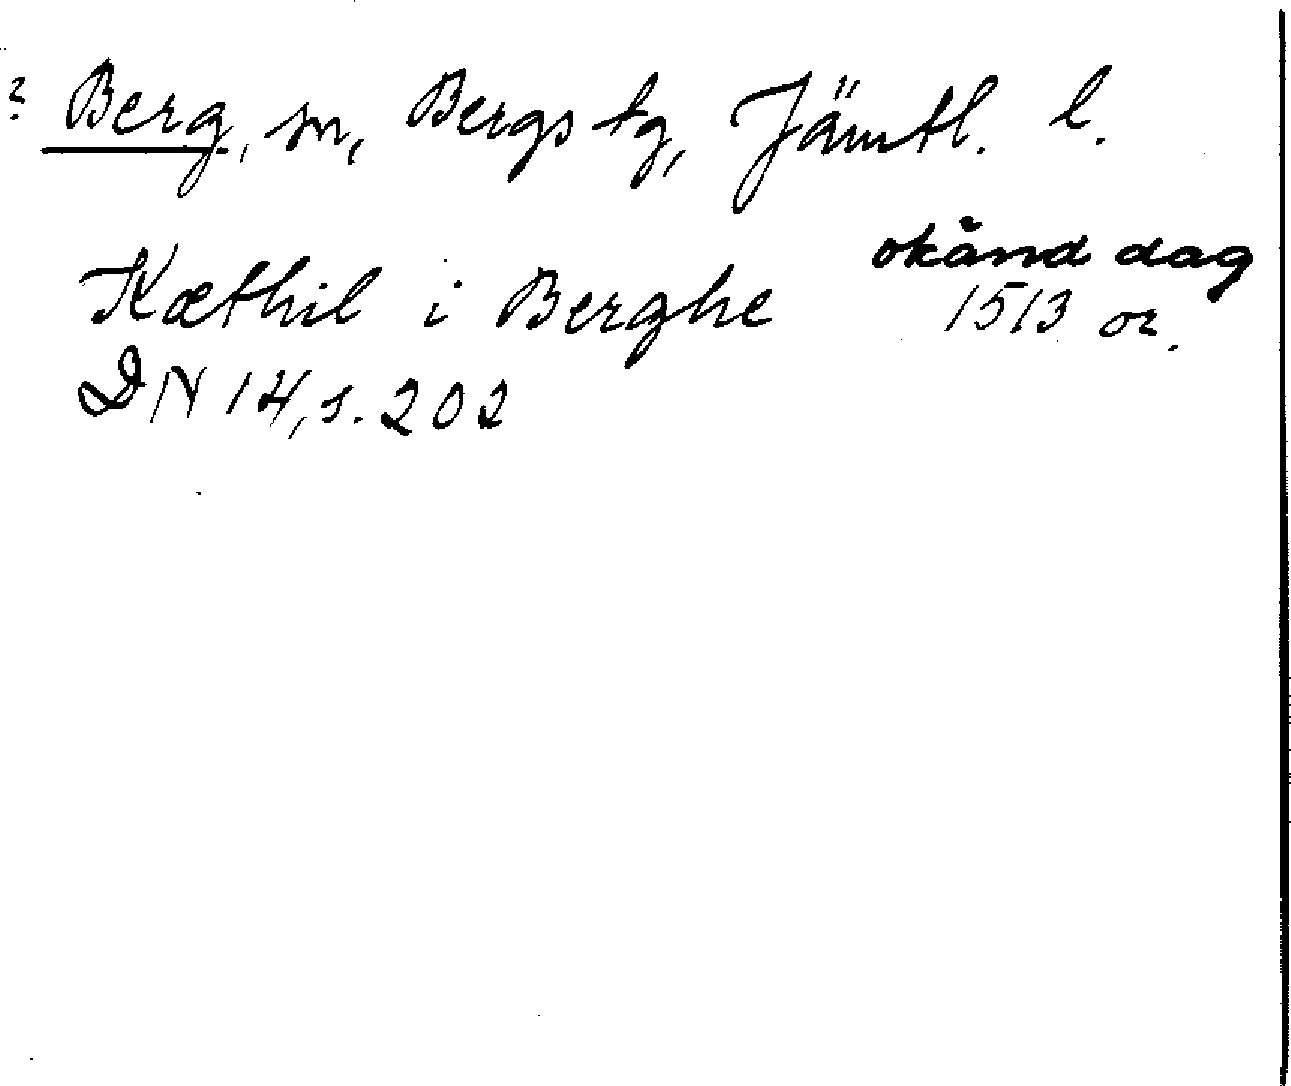 ? Berg, sn, Bergs tg, Jämtl. l.
okänd dag
Kæthil i Berghe 1513 or.
DN 14, s. 202